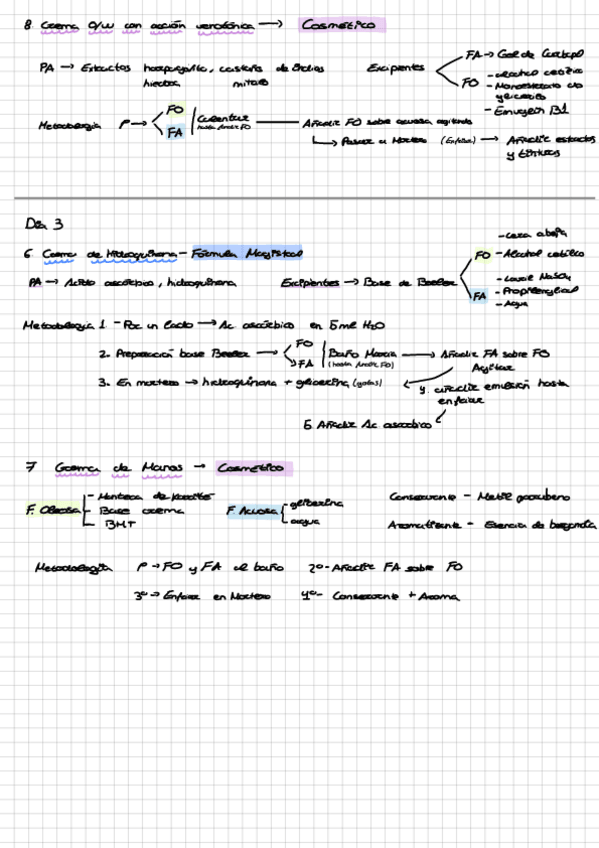 8. Crema O/W con acción venotónica → Cosmético
PA → Extractos harpagofito, castaña de Indias Excipientes FA → Gel de Carbopol
hiedra, mirtilo FO - Alcohol cetílico
- Monoestearato de
glicerilo
- Emulgein B1
Metodología 1º → FO FA Calentar hasta fundir FO — Añadir FO sobre acuosa agitando
→ Pasar a Mortero (Enfriar) → Añadir extractos
y tinturas
Día 3
6. Crema de Hidroquinona - Fórmula Magistral
PA → Ácido ascórbico, hidroquinona Excipientes → Base de Beeler FO - Cera abeja
- Alcohol cetílico
FA - Lauril NaSO4
- Propilenglicol
- Agua
Metodología 1. - Por un lado → Ac ascórbico en 5ml H2O
2. Preparación base Beeler → FO FA Baño María (hasta fundir FO) → Añadir FA sobre FO
Agitar
3. En mortero → hidroquinona + glicerina (gotas) 4. añadir emulsión hasta
enfriar
5. Añadir Ac ascorbico
7 Crema de Manos → Cosmético
F. Oleosa - Manteca de karité
- Base crema
- BHT
F. Acuosa glicerina
agua
Conservante - Metil parabeno
Aromatizante - Esencia de bergamota
Metodología 1º → FO y FA al baño 2º - Añadir FA sobre FO
3º → Enfriar en Mortero 4º - Conservante + Aroma